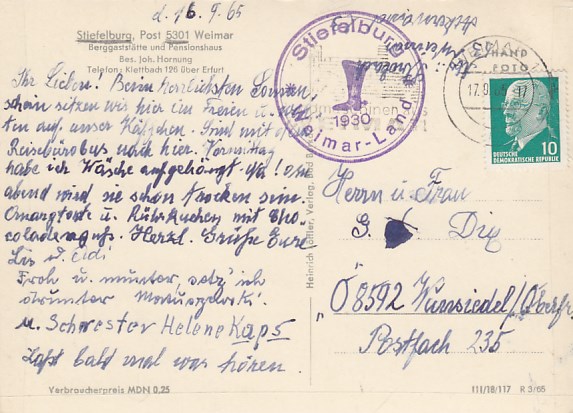 d. 16.9.65
Stiefelburg, Post 5301 Weimar
Berggaststätte und Pensionshaus
Bes. Joh. Hornung
Telefon: Klettbach 126 über Erfurt
Ihr Lieben. Beim herrlichsten Sonnen,
schein sitzen wir hier im Freien u. war,
ten auf unser Käffchen. Sind mit dem
Reisebürobus nach hier. Vormittag
habe ich Wäsche aufgehängt
abend wird sie schon trocken sein.
u. Rührkuchen mit Cho,
coladenguss. Herzl. Grüße Eure
Froh u. munter setz' ich
drunter
u. Schwester Helene Kaps
Lasst bald mal was hören.
Verbraucherpreis MDN 0,25
Stiefelburg
1930
Weimar-Land
17.9.65
DEUTSCHE
DEMOKRATISCHE REPUBLIK
10
Herrn u. Frau
G. Dix
"Ö8592 Wunsiedel/Oberfr.
Postfach 235
III/18/117 R 3/65